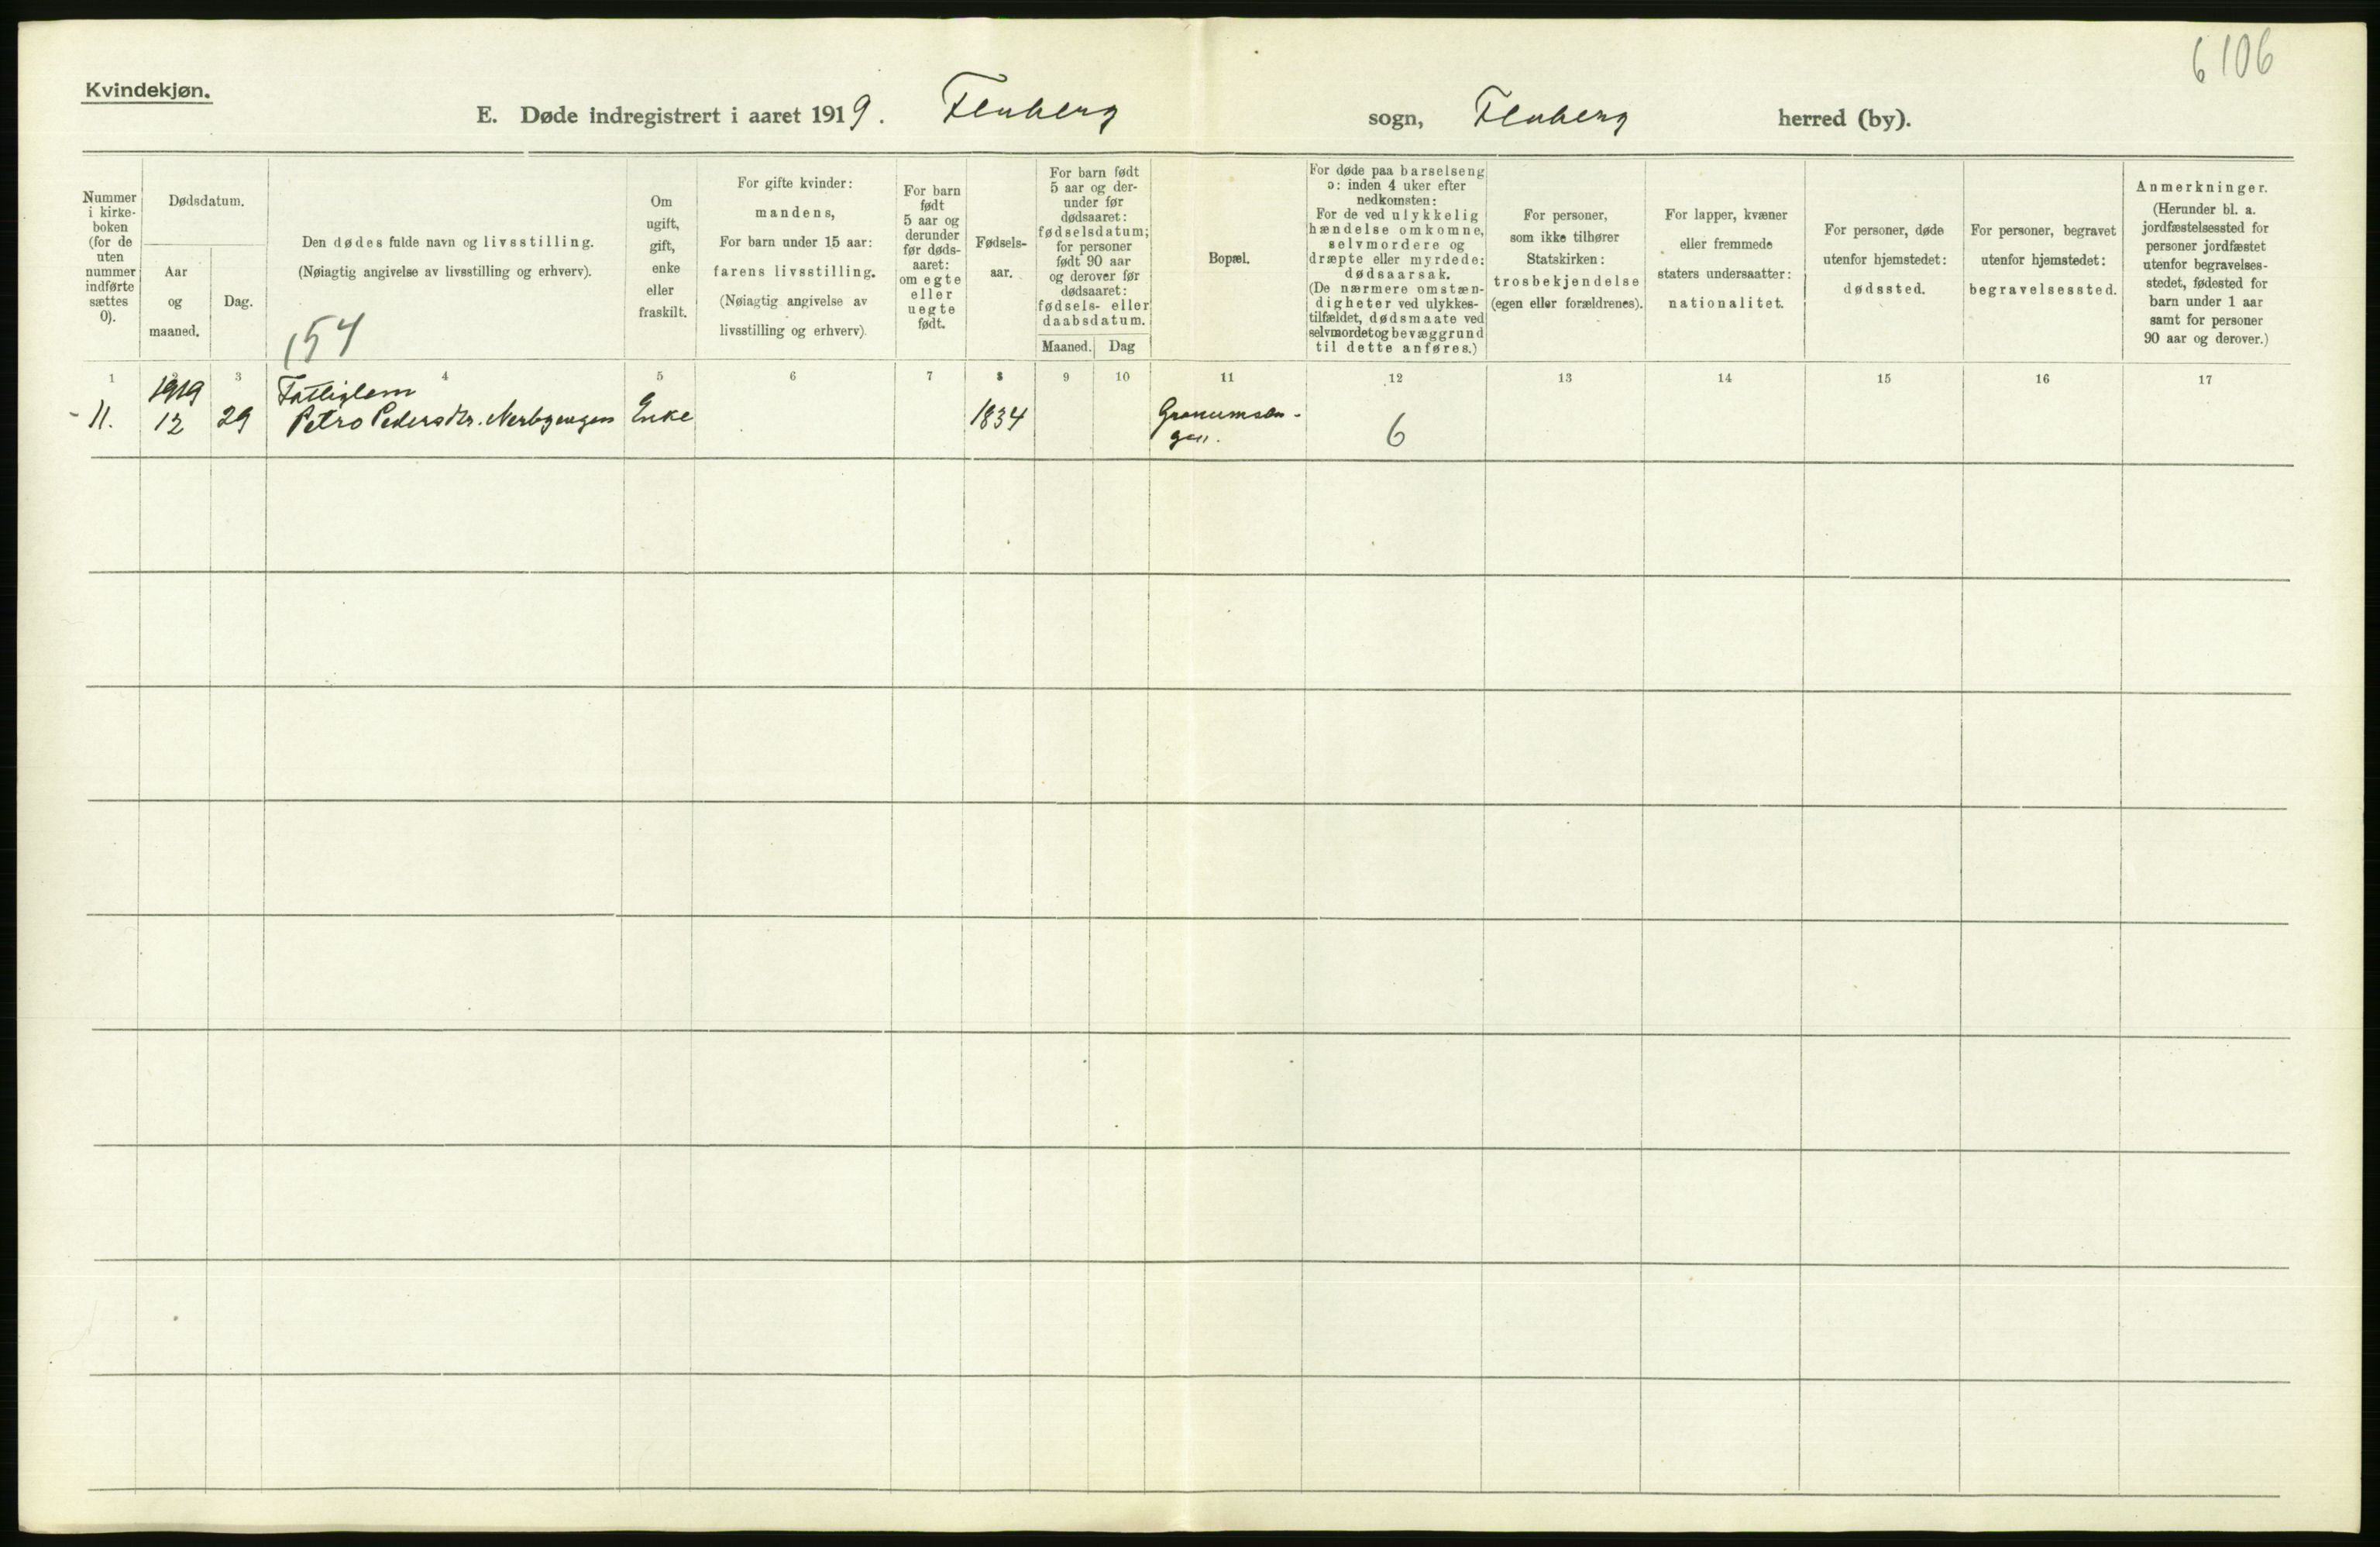 6 106
Kvindekjøn.
E. Døde indregistrert i aaret 1919. Flesberg sogn, Flesberg herred (by).
Nummer
i kirke-
boken
(for de
uten
nummer
indførte
sættes
0).
Dødsdatum.
Aar
og
maaned.
Dag.
Den dødes fulde navn og livsstilling.
(Nøiagtig angivelse av livsstilling og erhverv).
154
Om
ugift,
gift,
enke
eller
fraskilt.
For gifte kvinder:
mandens,
For barn under 15 aar:
farens livsstilling.
(Nøiagtig angivelse av
livsstilling og erhverv).
For barn
født
5 aar og
derunder
før døds-
aaret:
om egte
eller
uegte
født.
Fødsels-
aar.
For barn født
5 aar og der-
under før
dødsaaret:
fødselsdatum;
for personer
født 90 aar
og derover før
dødsaaret:
fødsels- eller
daabsdatum.
Maaned. Dag
Bopæl.
For døde paa barselseng
ɔ: inden 4 uker efter
nedkomsten:
For de ved ulykkelig
hændelse omkomne,
selvmordere og
dræpte eller myrdede:
dødsaarsak.
(De nærmere omstæn-
digheter ved ulykkes-
tilfældet, dødsmaate ved
selvmordet og bevæggrund
til dette anføres.)
For personer,
som ikke tilhører
Statskirken:
trosbekjendelse
(egen eller forældrenes).
For lapper, kvæner
eller fremmede
staters undersaatter:
nationalitet.
For personer, døde
utenfor hjemstedet:
dødssted.
For personer, begravet
utenfor hjemstedet:
begravelsessted.
Anmerkninger.
(Herunder bl. a.
jordfæstelsessted for
personer jordfæstet
utenfor begravelses-
stedet, fødested for
barn under 1 aar
samt for personer
90 aar og derover.)
1 2 3 4 5 6 7 8 9 10 11 12 13 14 15 16 17
1919 Fattiglem
11. 12 29 Petro Pedersdtr. Enke 1834 6